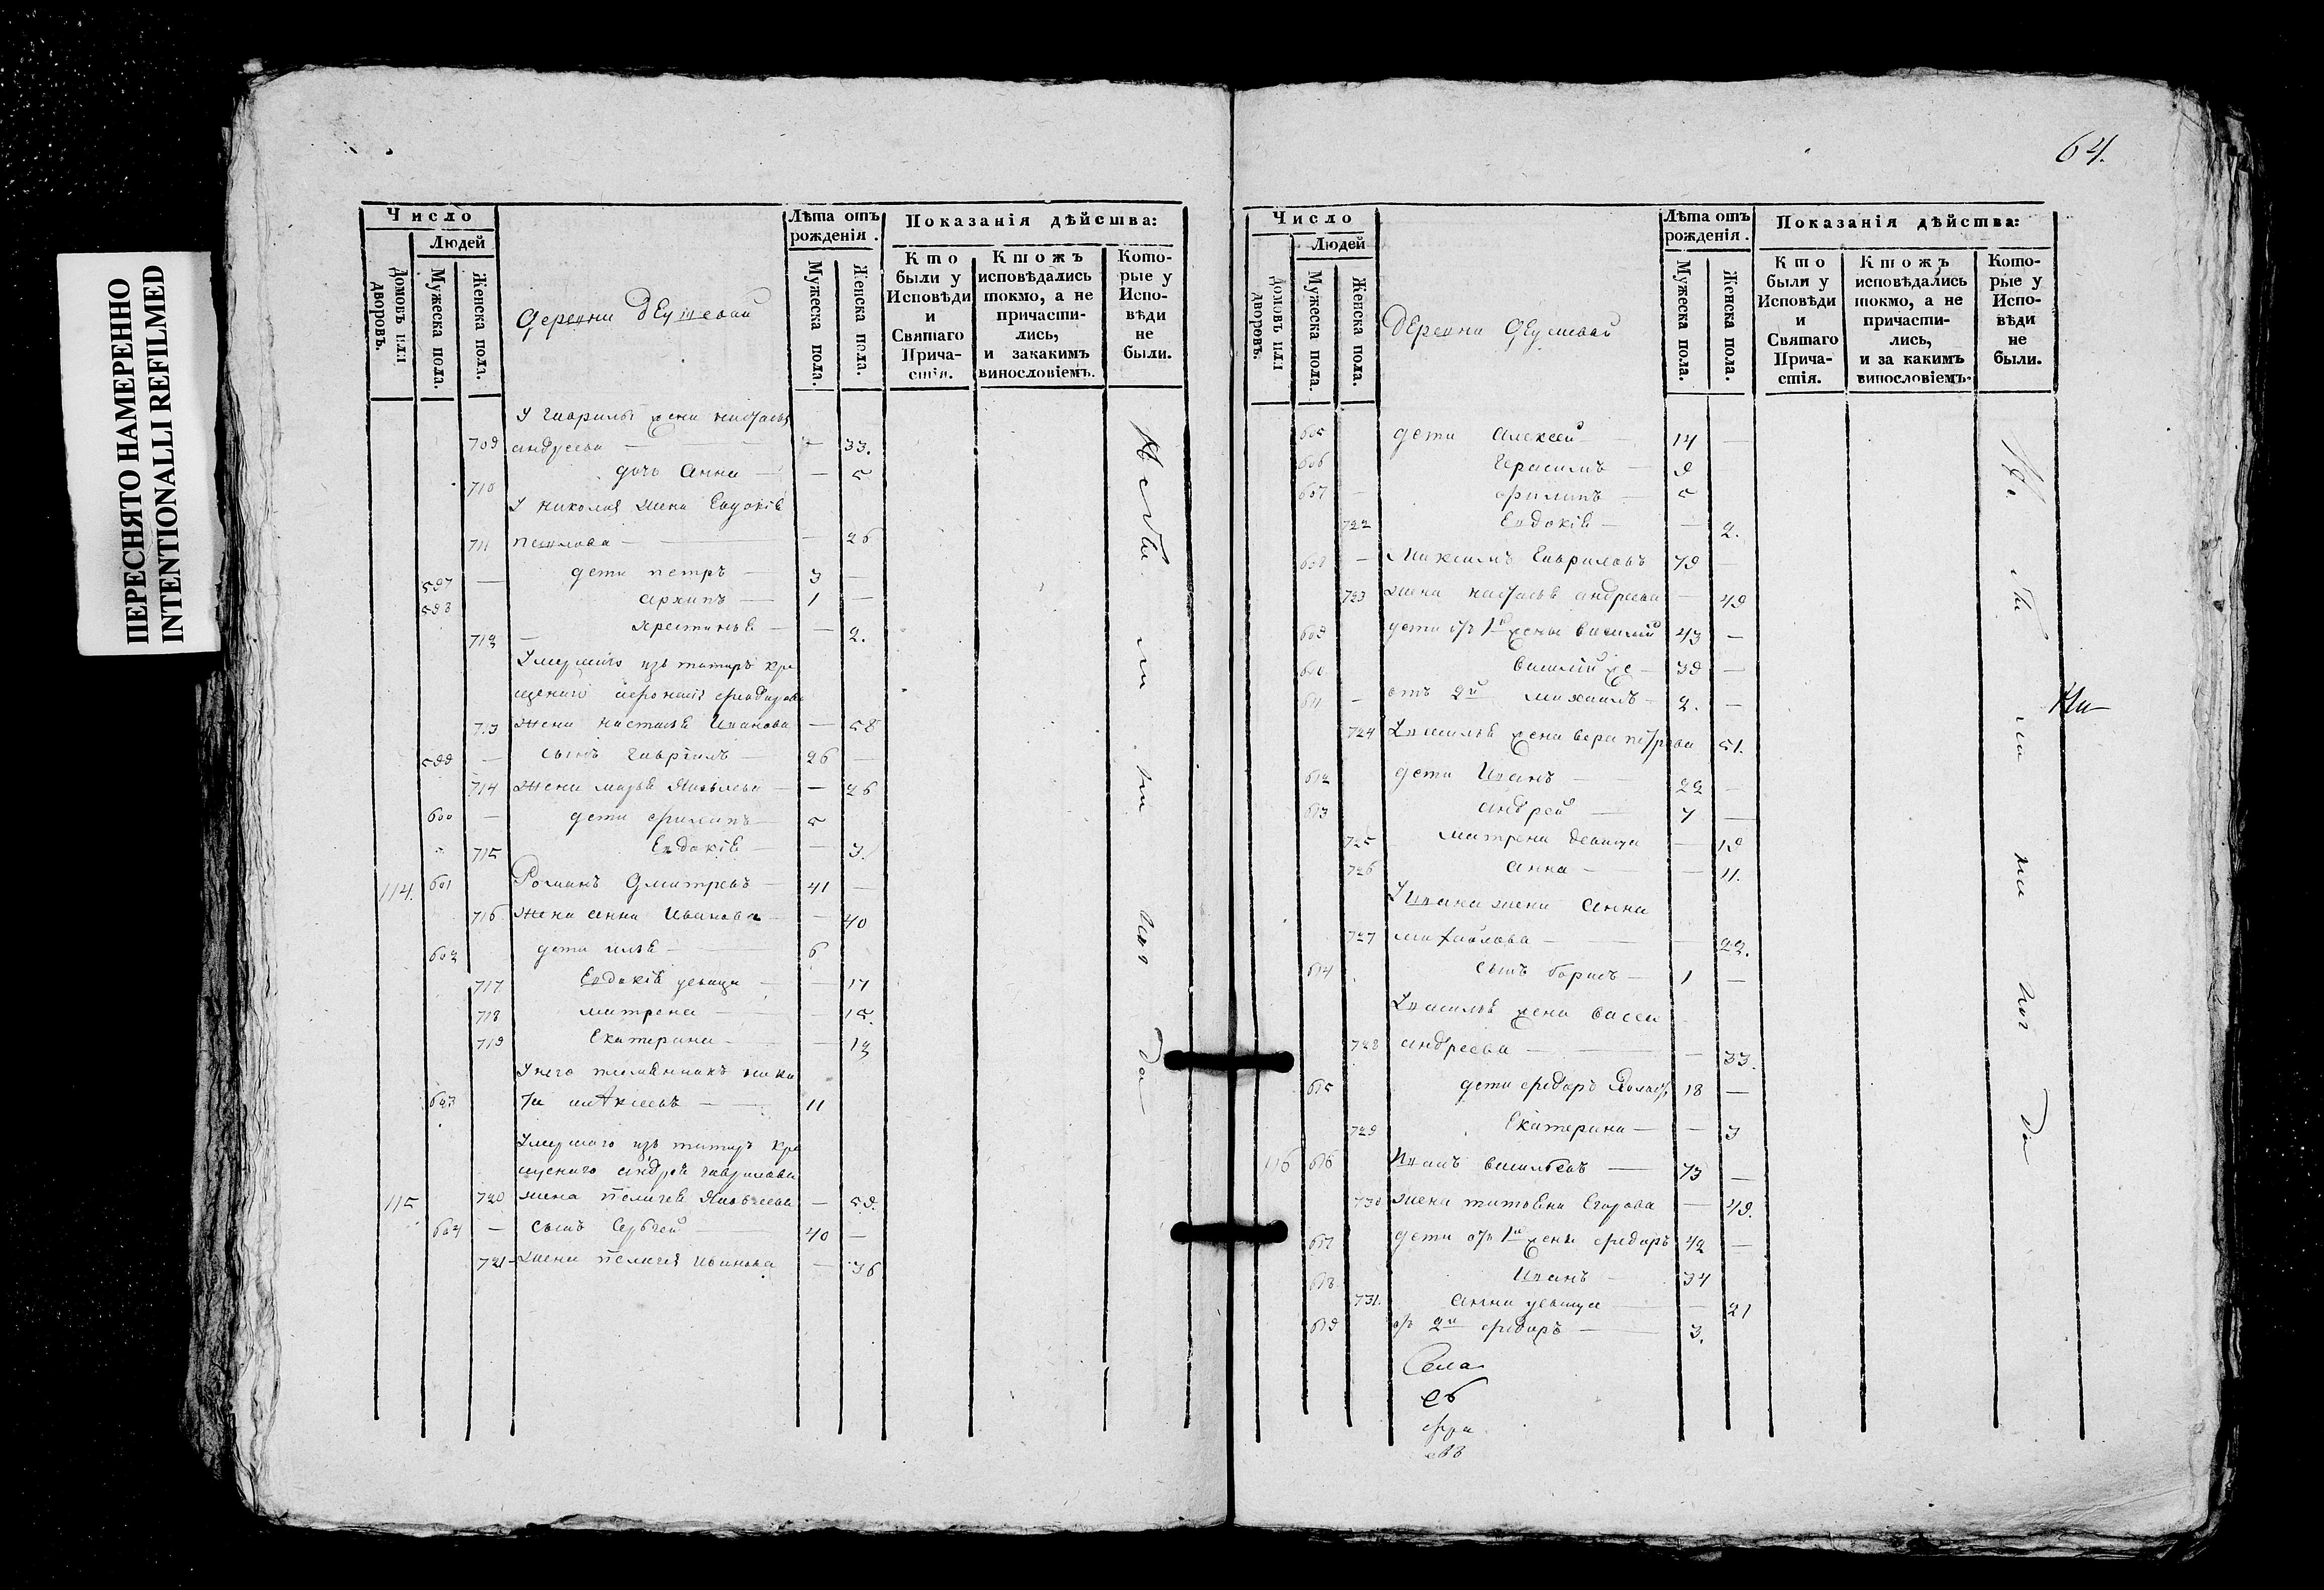 ПЕРЕСНЯТО НАМЕРЕННО
INTENTIONALLI REFILMED
Число
Людей
Домовъ или дворовъ.
Мужеска пола.
Женска пола.
деревни деушевай
Лѣта отъ рожденія.
Мужеска пола.
Женска пола.
Показанія дѣйства:
Кто были у Исповѣди и Святаго Причастія.
Ктожъ исповѣдались токмо, а не причастились, и закакимъ винословіемъ.
Которые у Исповѣди не были.
У гаврилы жена настасья
709 андреева — 33.
710 дочь Анна — — 5
У николая жена Евдокія
711 — — 26
597 — дети петръ — 3 —
598 архипъ — 1 —
712 — — 2.
Умершаго изъ татаръ кре
щенаго
713 Жена настасья Иванова — 58
599 — сынъ гаврилъ — 26 —
714 Жена марья Яковлева — — 26
600 — дети филипъ — 5
715 Евдокія — — 3.
114. 601 Романъ Дмитревъ — 41 —
716 Жена анна Иванова — — 40
602 дети илья — 6
717 Евдокія девица — — 17
718 матрена — — 15.
719 Екатерина — — 12
У него племянникъ ники
603 та — 11
Умершаго изъ татаръ кре
щенаго андрея гаврилова
115 720 жена пелагея — 59.
604 — сынъ Сергей — 40 —
721 — жена пелагея иванова — 36
64.
Число
Людей
Домовъ или дворовъ.
Мужеска пола.
Женска пола.
деревни деушевай
Лѣта отъ рожденія.
Мужеска пола.
Женска пола.
Показанія дѣйства:
Кто были у Исповѣди и Святаго Причастія.
Ктожъ исповѣдались токмо, а не причастились, и за какимъ винословіемъ.
Которые у Исповѣди не были.
605 дети Алексей — 14 —
606 герасимъ — 9
607 — филипъ — 5
722 Евдокія — — 2.
608 — Максимъ Гавриловъ 79 —
723 жена настасья андреева — 49
609 дети отъ 1й жены василий 43 —
610 василий же — 39 —
611 — отъ 2й михаилъ — 2. —
724 У василья жена вера петрова 51.
612 дети Иванъ — 22 —
613 андрей — 7 —
725 матрена девица — 19
726 анна — — 11.
У Ивана жена анна
727 михайлова — — 22.
614 сынъ борисъ — 1 —
У василья жена васса
728 андреева — — 33.
615 дети федоръ 18 —
729 Екатерина — — 3
116 616 Иванъ васильевъ — 73 —
730 жена татьяна Егорова — 49.
617 дети отъ 1й жены федоръ 42 —
618 Иванъ — 34
731. анна девица — — 21
619 отъ 2й федоръ — 3.